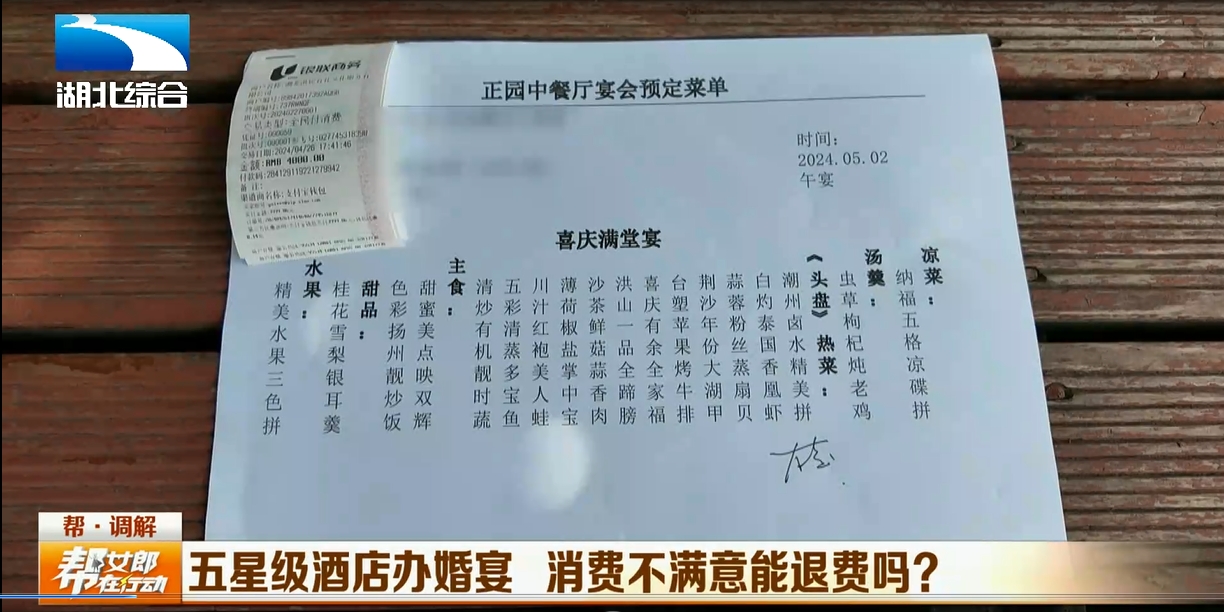 湖北综合
银联商务
交易类型:全民付消费
凭证号:000059
交易日期:2024/04/26 17:41:46
金额:RMB 4000.00
付款码:284129119221279942
备注:
渠道商名称:支付宝钱包
正园中餐厅宴会预定菜单
时间：
2024.05.02
午宴
喜庆满堂宴
凉菜：
纳福五格凉碟拼
汤羹：
虫草枸杞炖老鸡
《头盘》热菜：
潮州卤水精美拼
白灼泰国香凰虾
蒜蓉粉丝蒸扇贝
荆沙年份大湖甲
台塑苹果烤牛排
喜庆有余全家福
洪山一品全蹄膀
沙茶鲜菇蒜香肉
薄荷椒盐掌中宝
川汁红袍美人蛙
五彩清蒸多宝鱼
清炒有机靓时蔬
主食：
甜蜜美点映双辉
色彩扬州靓炒饭
甜品：
桂花雪梨银耳羹
水果：
精美水果三色拼
帮·调解
帮女郎
在行动
五星级酒店办婚宴 消费不满意能退费吗？